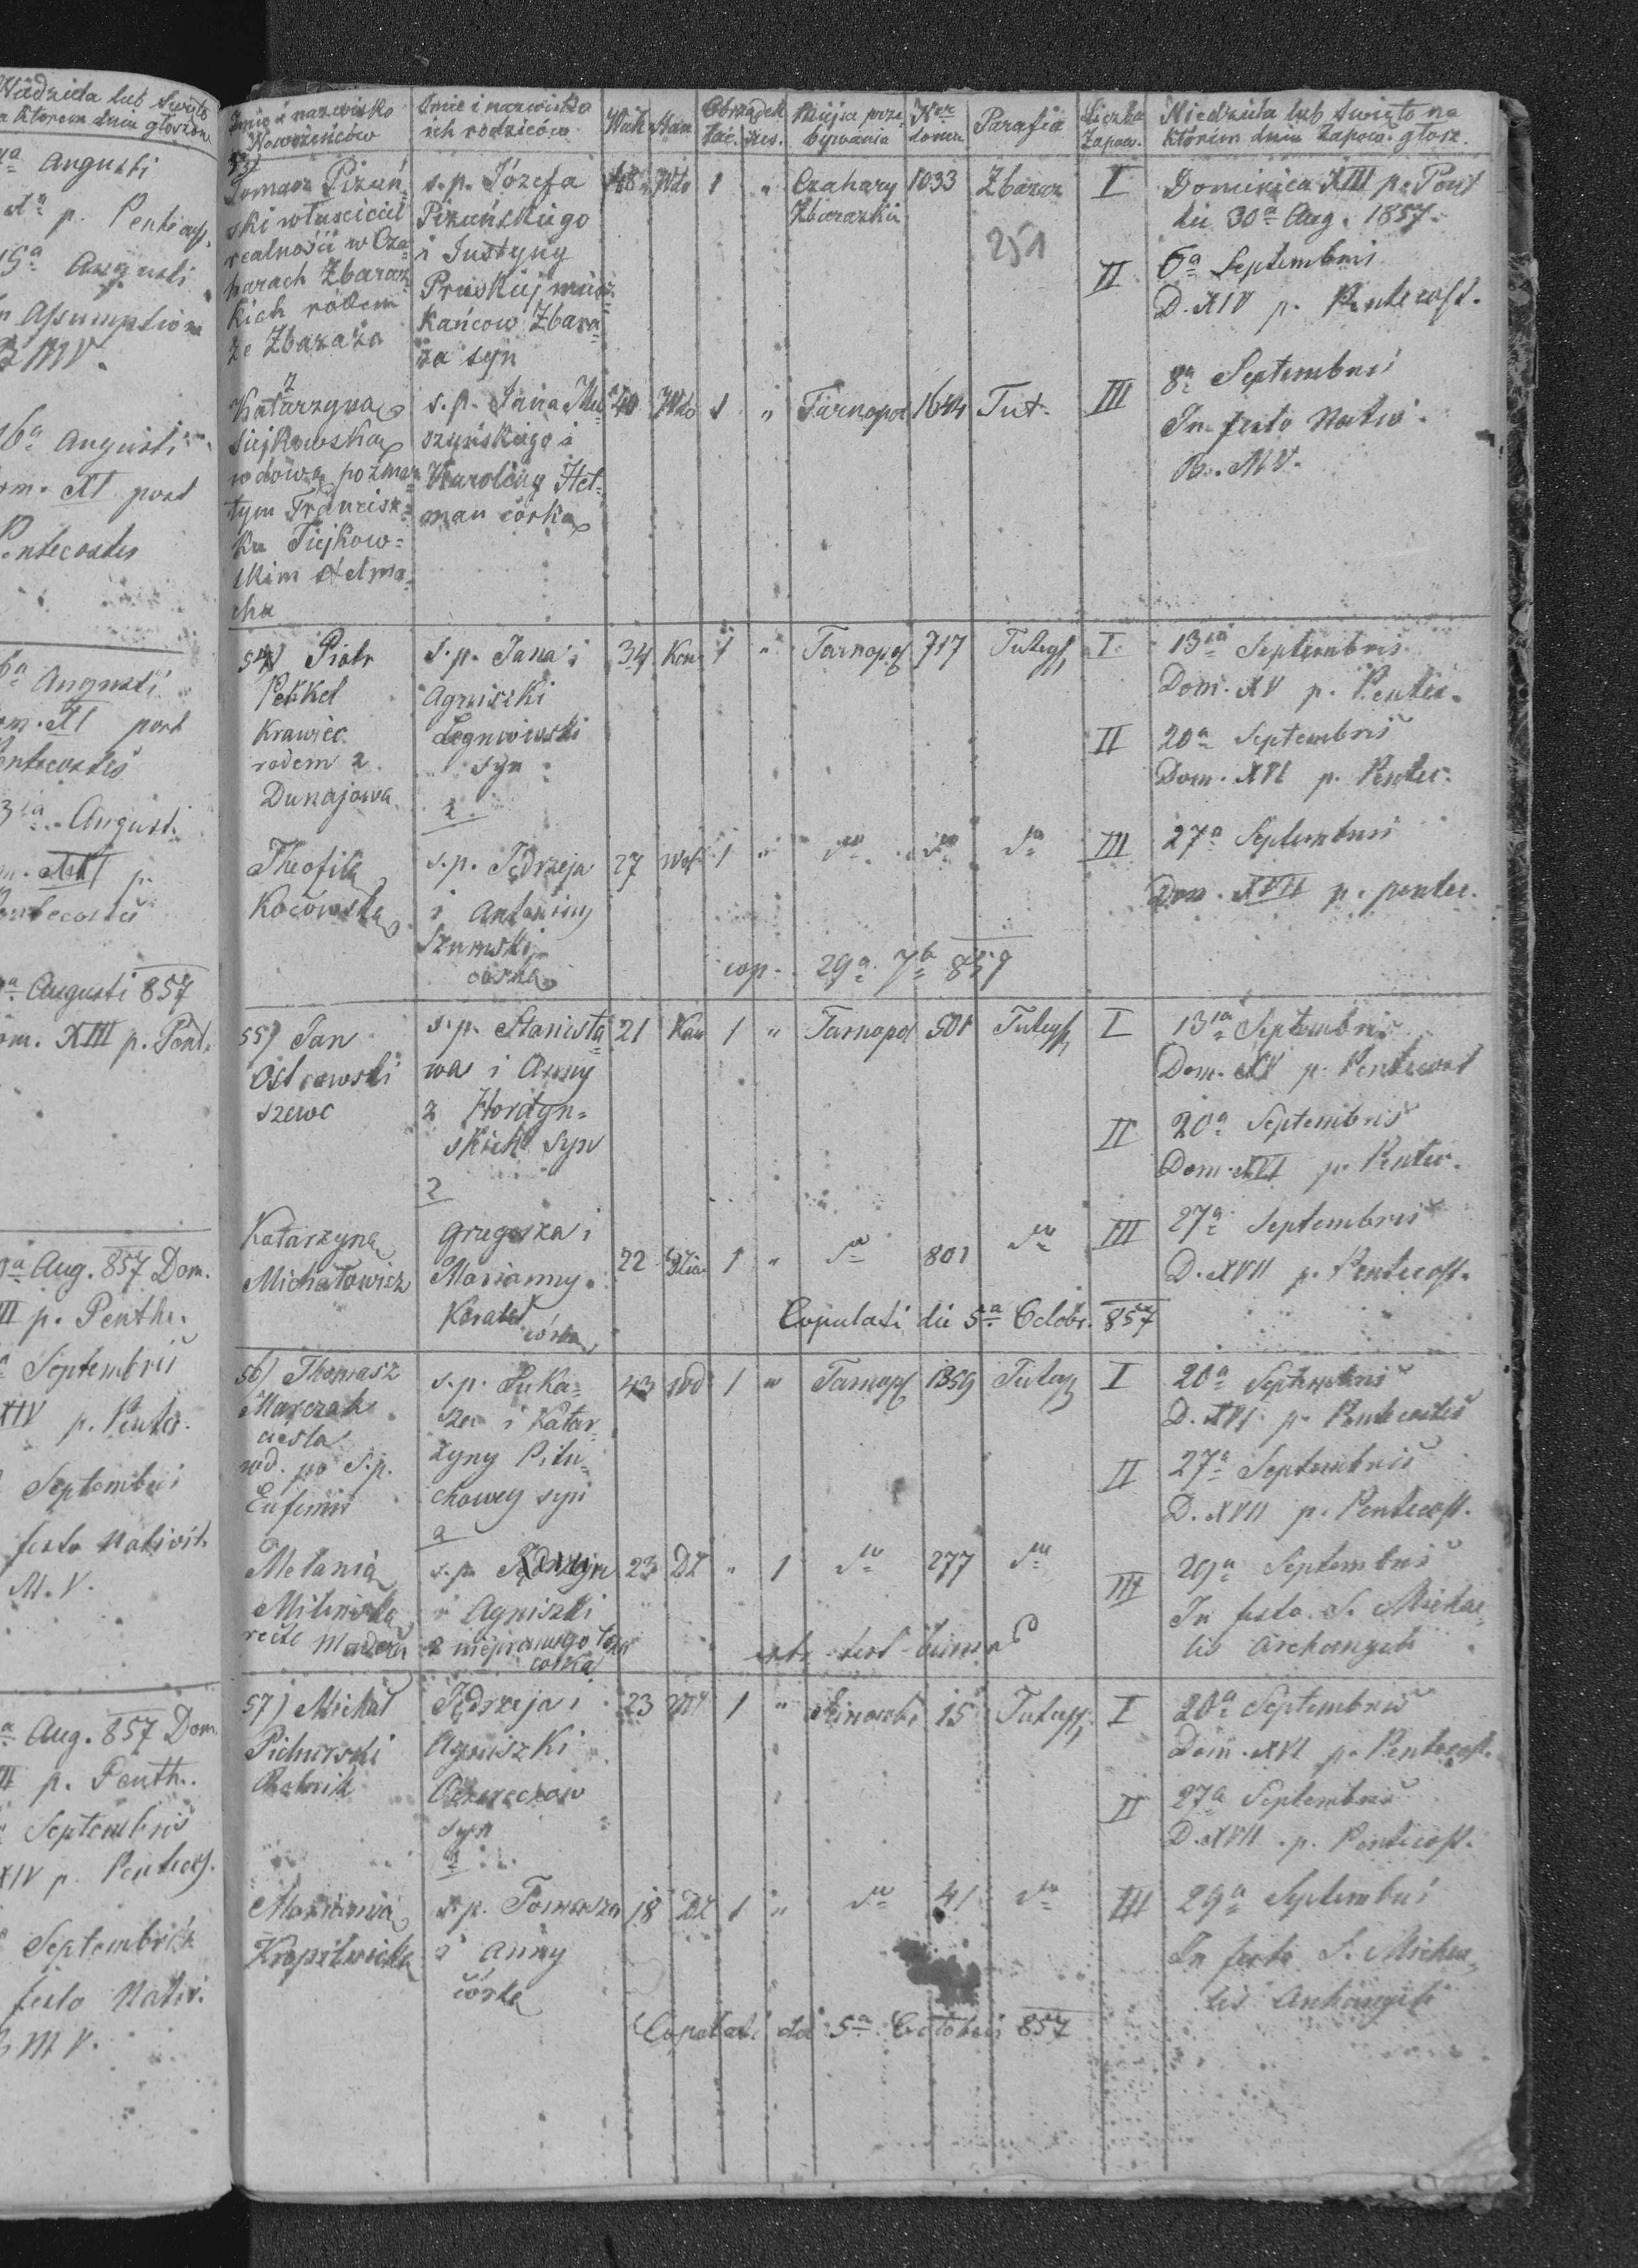 Niedziela lub Święto
Którem dniu głoszone
Augusti
p. Pentecost.
15a Augusti
Assumptione
B M V.
16a Augusti
Dom. XI post
Pentecostes
Augusti
Dom. XI post
Pentecostes
Augusti
p.
Augusti 857
Dom. XIII p. Pent.
Aug. 857 Dom.
III p. Penth.
Septembris
XIV p. Pentec.
Septembris
festo Nativit.
M. V.
Aug. 857 Dom.
III p. Penth.
Septembris
XIV p. Pentecost.
Septembris
festo Nativ.
M V.
Imię i nazwisko Nowożeńców
Imię i nazwisko ich rodziców
Wiek
Stan
Obrządek
łac.
Miejsce prze- bywania
Ner domu
Parafia
Liczba Zapow.
Niedziela lub Święto na
Którem dniu Zapow. głosz.
53)
Tomasz Pizuń-
ski właściciel
realności w Cza-
harach Zbaraz-
kich rodem
ze Zbaraża
s.p. Józefa
Pizuńskiego
i Justyny
Pruskiej miesz-
kańców Zbara-
ża syn
48 Wdo 1 " Czahary Zbarazkie 1033 Zbaraz
251
I Dominica XIII p. Pent
die 30a Aug. 1857
II 6a Septembris
D. XIV p. Pentecost.
z
Katarzyna
wdowa po zmar-
tym Francisz-
ku Tiejkow-
skim stelma-
cha
s.p. Jana Mu-
szyńskiego i
Karoliny Het-
man córka
40 Wdo 1 " Tarnopol 1644 Tut.
III 8a Septembris
In festo Nativ.
B. M V.
54) Piotr
Pekkel
Krawiec
rodem z
Dunajowa
s.p. Jana i
Agnieszki
syn
z
34 Kaw 1 " Tarnopol 717 Tutejs.
I 13ia Septembris
Dom. XV p. Pentec.
II 20a Septembris
Dom. XVI p. Pentec.
Theofila
Kocowska
s.p. Jędrzeja
i Antoniny
córka
27 1 " dto dto dto
III 27a Septembris
Dom. XVII p. pentec.
cop. 29a 7b 857
55) Jan
Ostrowski
szewc
s.p. Stanisła-
wa i Anny
z Hordyn-
skich Syn
z
21 Kaw 1 " Tarnopol 501 Tutejs.
I 13ia Septembris
Dom. XV p. Pentecost
II 20a Septembris
Dom. XVI p. Pentec.
Katarzyna
Michałowicz
Grzegorza i
Marianny
córka
22 1 " dto 801 dto
III 27a Septembris
D. XVII p. Pentecost.
Copulati die 5a Octobr. 857
56) Thomasz
Marczak
cieśla
wd. po S.p.
Eufemii
s.p. Łuka-
sza i Katar-
zyny Pitu-
chowey syn
z
43 Wd 1 " Tarnopol 1359 Tutejs
I 20a Septembris
D. XVI p. Pentecostes
II 27a Septembris
D. XVII p. Pentecost.
Melania
recte
s.p. Jędrzeja
i Agnieszki
z nieprawego łoża
córka
23 Dz " 1 dto 277 dto
III 29a Septembris
In festo S. Michae-
lis Archangeli
57) Michał
Rolnik
Jędrzeja i
Agnieszki
syn
z
23 1 " 15 Tutejs.
I 20a Septembris
Dom. XVI p. Pentecost.
II 27a Septembris
D. XVII p. Pentecost.
Marianna
Kropilnicka
s.p. Tomasza
i Anny
córka
18 Dz 1 " dto 41 dto
III 29a Septembris
In festo S. Michae-
lis Archangeli
Copulati die 5a Octobris 857